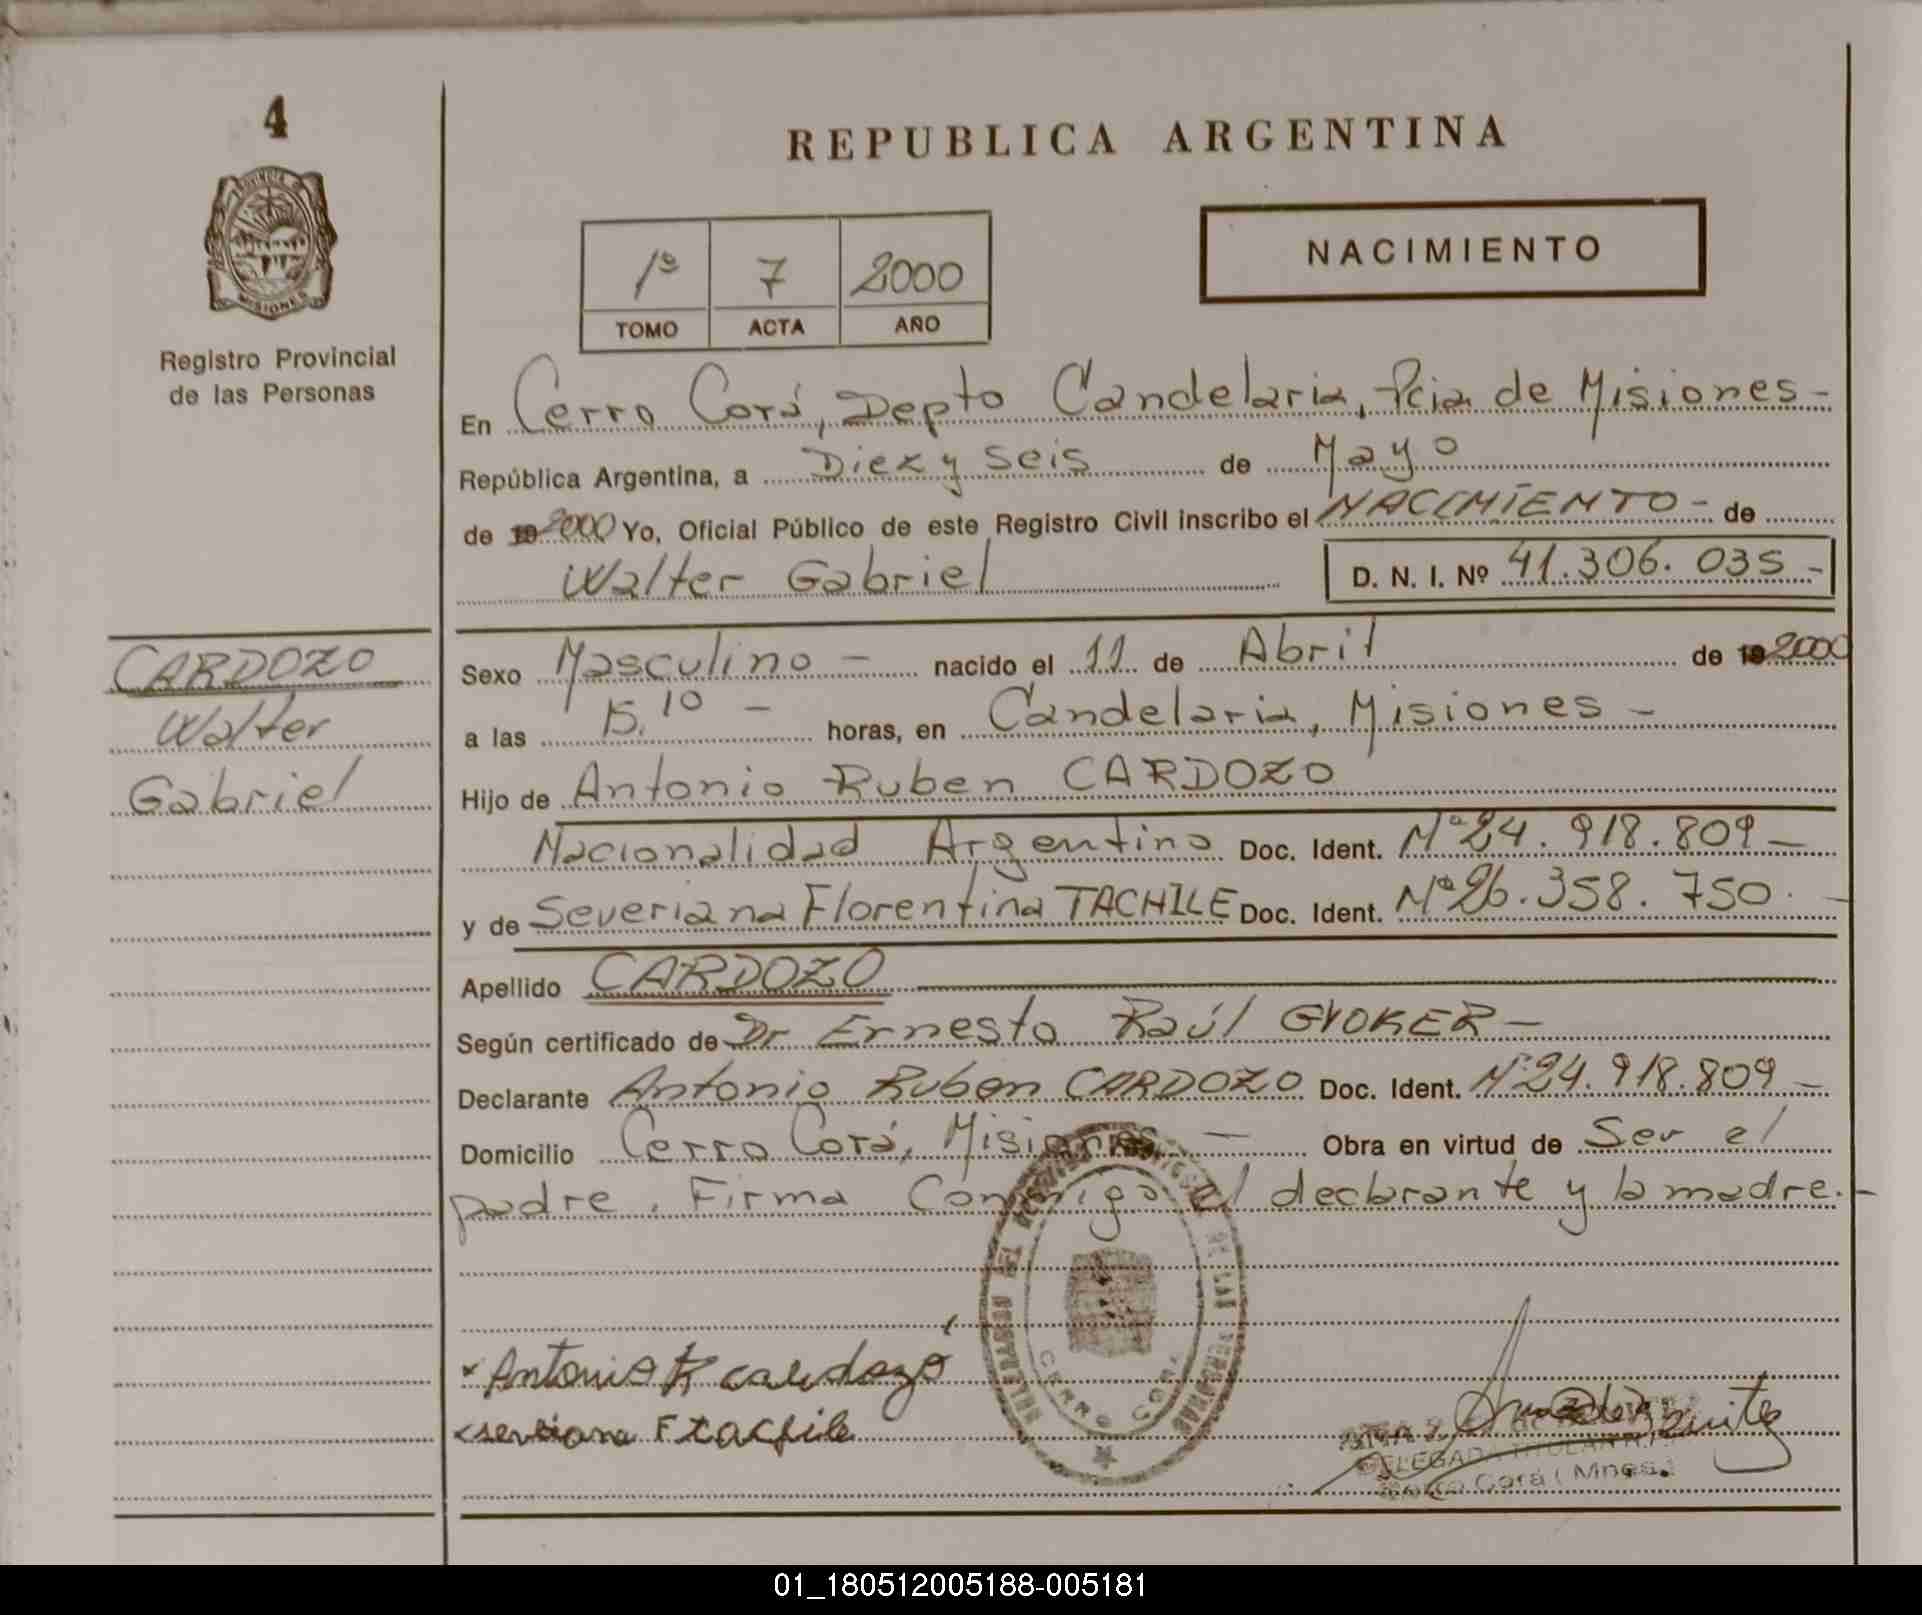 4
PROVINCIA DE
MISIONES
Registro Provincial
de las Personas
REPUBLICA ARGENTINA
1º 7 2000
TOMO ACTA AÑO
NACIMIENTO
En Cerro Corá, Depto Candelaria, Pcia de Misiones -
República Argentina, a Diez y seis de Mayo
de 19 2000 Yo, Oficial Público de este Registro Civil inscribo el NACIMIENTO - de
Walter Gabriel D. N. I. Nº 41.306.035 -
CARDOZO
Walter
Gabriel
Sexo Masculino - nacido el 11 de Abril de 19 2000
a las 15.10 - horas, en Candelaria, Misiones -
Hijo de Antonio Ruben CARDOZO
Nacionalidad Argentino Doc. Ident. Nº 24.918.809 -
y de Severiana Florentina TACHILE Doc. Ident. Nº 26.358.750. -
Apellido CARDOZO
Según certificado de Dr Ernesto Raúl GVOKER -
Declarante Antonio Ruben CARDOZO Doc. Ident. Nº 24.918.809 -
Domicilio Cerro Corá, Misiones - Obra en virtud de Ser el
padre. Firma Conmigo el declarante y la madre. -
DE LAS PERSONAS
CERRO CORA
x Antonio R cardozo
severiana F tachile
DELEGADA TITULAR
Cerro Corá (Mnes.)
01_180512005188-005181